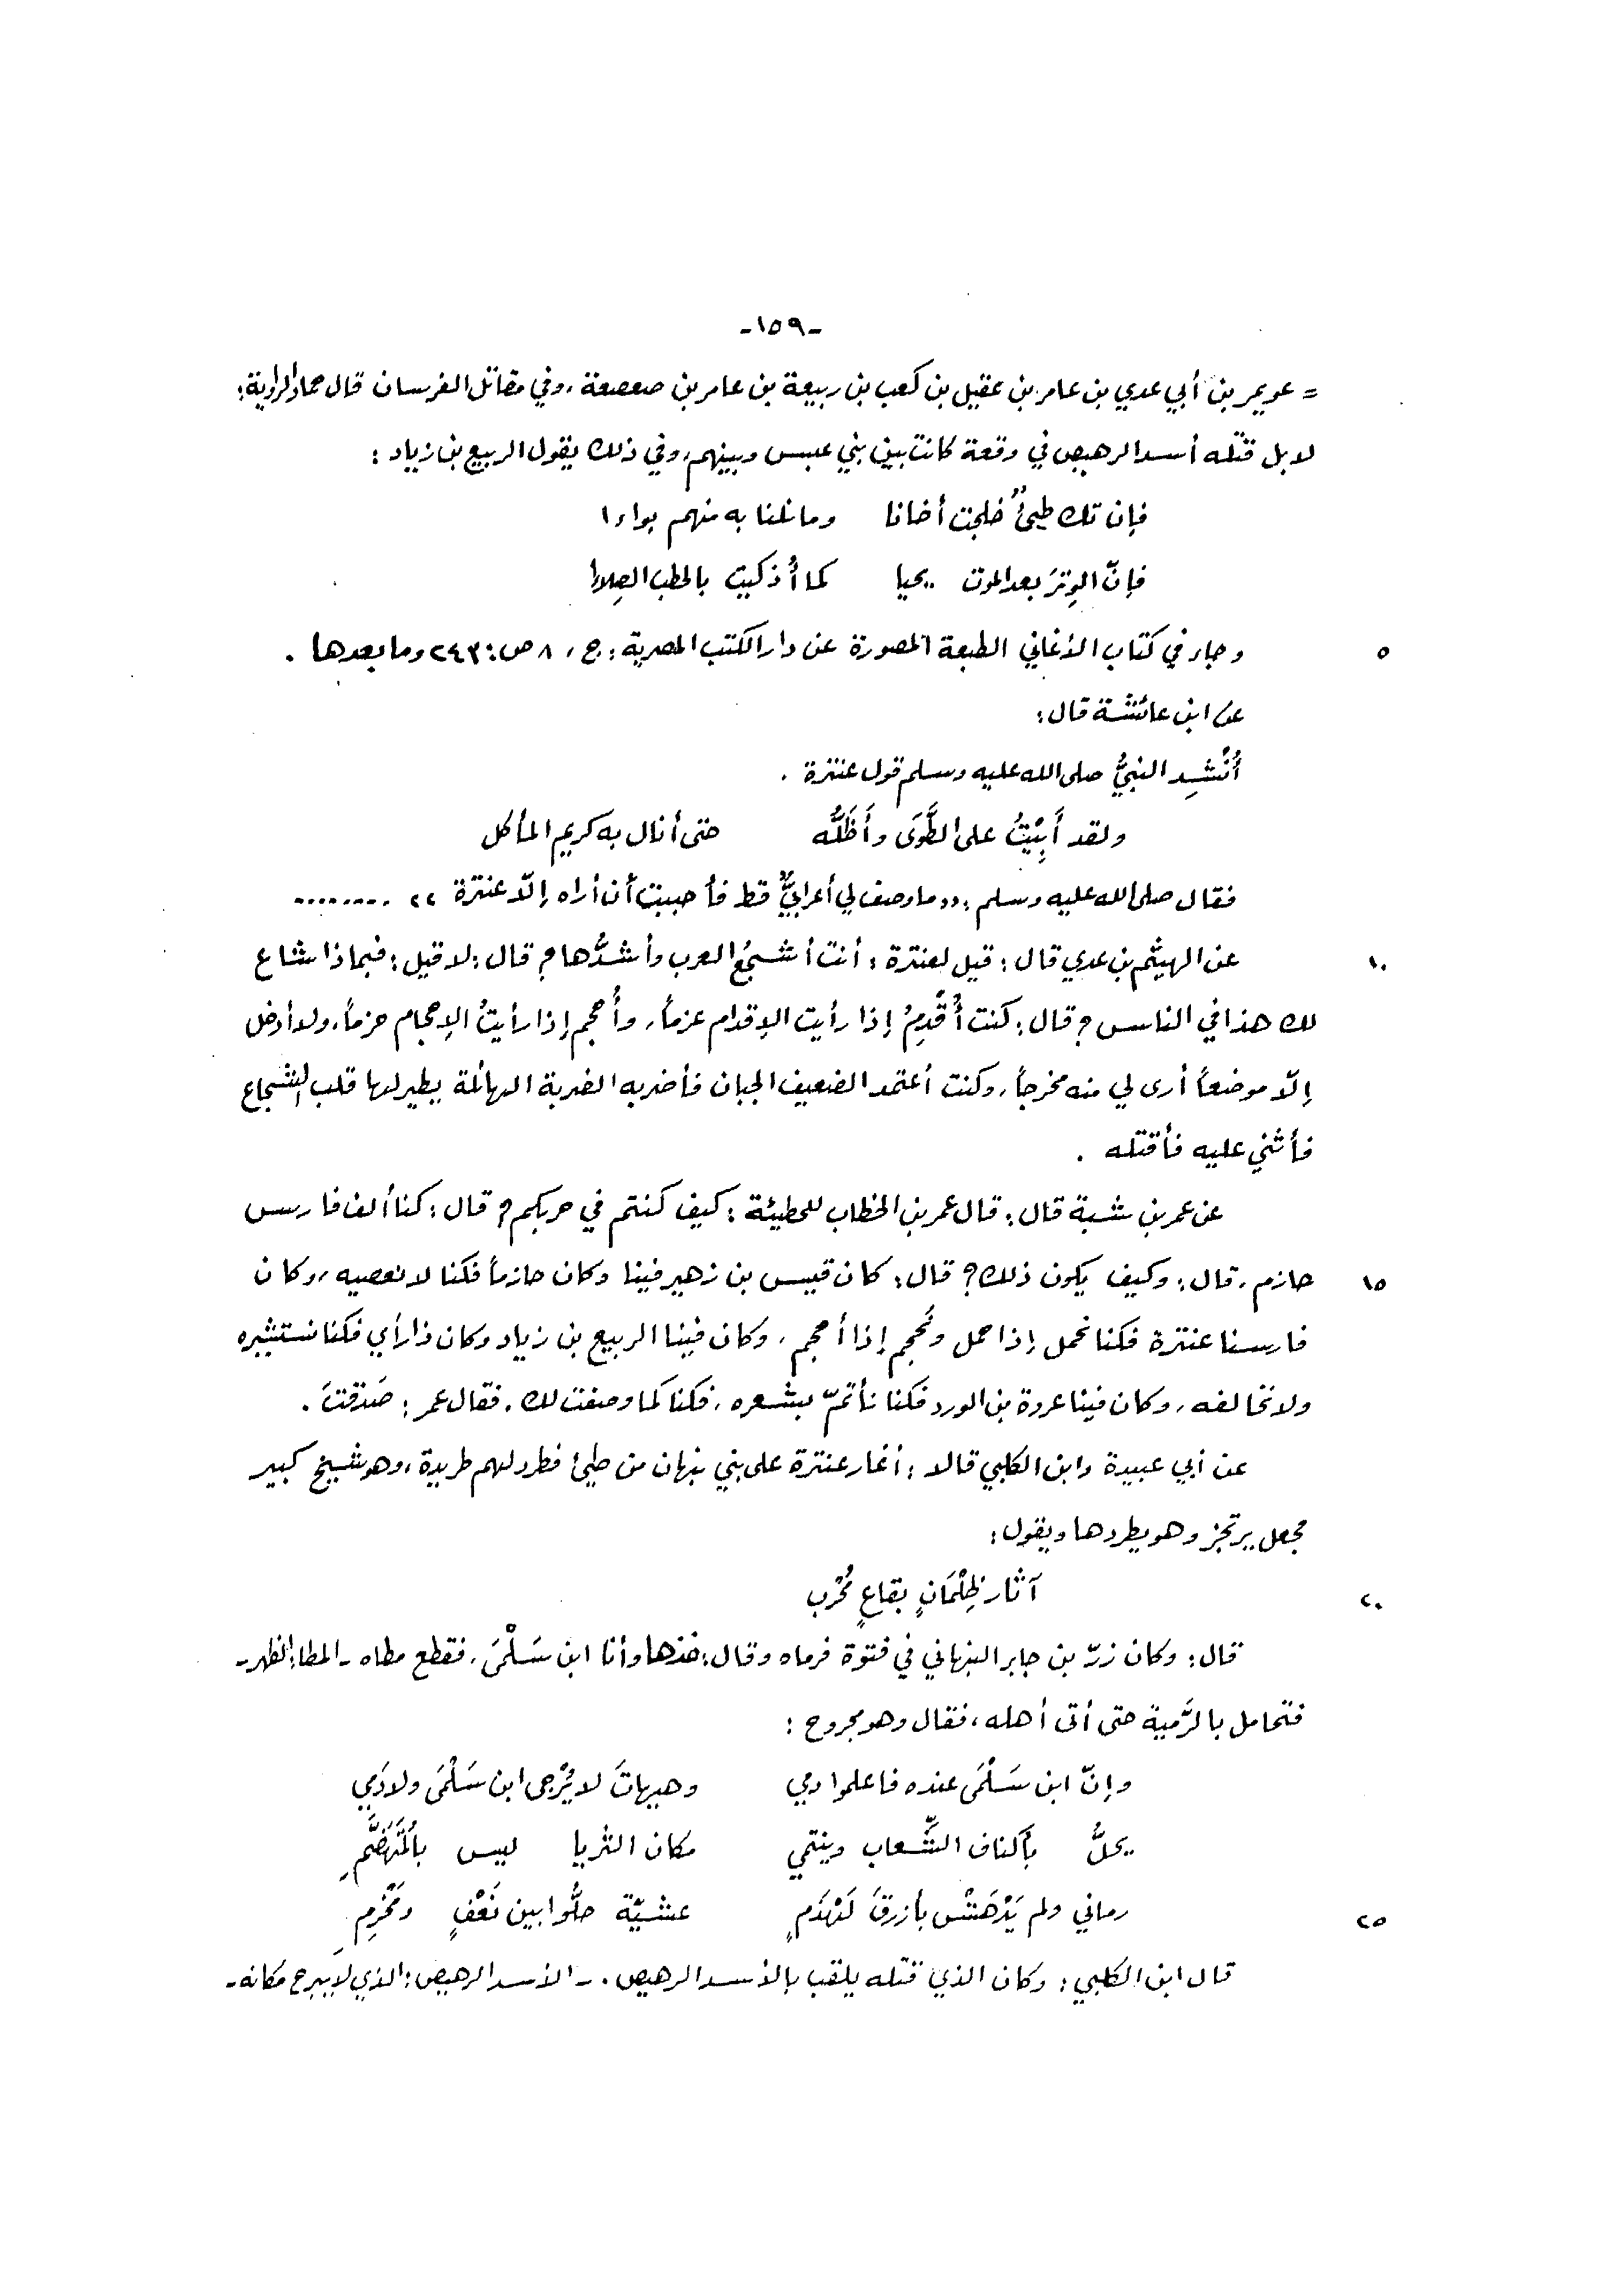 -١٥٩-
= عويمر بن أبي عدي بن عامر بن عقيل بن كعب بن ربيعة بن عامر بن صعصعة، وفي مقاتل الفرسان قال حماد الراوية:
لا بل قتله أسد الرهيص في وقعة كانت بين بني عبس وبينهم، وفي ذلك يقول الربيع بن زياد:
فإن تك طيئٌ خلجت أخانا    وما نلنا به منهم بواءا
فإنّ الوِترَ بعد الموت يحيا    كما أُذكيت بالحطب الصِلاءا
٥ وجاء في كتاب الأغاني الطبعة المصورة عن دار الكتب المصرية: ج، ٨ ص: ٢٤٣ وما بعدها.
عن ابن عائشة قال:
أُنْشِد النبيُّ صلى الله عليه وسلم قول عنترة.
ولقد أَبِيْتُ على الطَّوَى وأَظَلُّه    حتى أنال به كريم المأكل
فقال صلى الله عليه وسلم: «ما وصف لي أعرابيٌّ قط فأحببت أن أراه إلّا عنترة» ........
١٠ عن الهيثم بن عدي قال: قيل لعنترة: أنت أشجعُ العرب وأشدُّها؟ قال: لا قيل: فبماذا شاع
لك هذا في الناس؟ قال: كنت أُقْدِمُ إذا رأيت الإقدام عزماً، وأُحجم إذا رأيتُ الإحجام حزماً، ولا أدخل
إلّا موضعاً أرى لي منه مخرجاً، وكنت أعتمد الضعيف الجبان فأضربه الضربة الهائلة يطير لها قلب الشجاع
فأثني عليه فأقتله.
عن عمر بن شبة قال: قال عمر بن الخطاب للحطيئة: كيف كنتم في حربكم؟ قال: كنا ألف فارس
١٥ حازم، قال: وكيف يكون ذلك؟ قال: كان قيس بن زهير فينا وكان حازماً فكنا لا نعصيه، وكان
فارسنا عنترة فكنا نحمل إذا حمل ونُحجم إذا أحجم، وكان فينا الربيع بن زياد وكان ذا رأي فكنا نستشيره
ولا نخالفه، وكان فينا عروة بن الورد فكنا نأتمّ بشعره، فكنا كما وصفت لك. فقال عمر: صَدَقتَ.
عن أبي عبيدة وابن الكلبي قالا: أغار عنترة على بني نبهان من طيئ فطرد لهم طريدة، وهو شيخ كبير
فجعل يرتجز وهو يطردها ويقول:
٢٠ آثار ظِلْمَانٍ بقاعٍ مُحْرب
قال: وكان زرّ بن جابر النبهاني في فتوة فرماه وقال: خذها وأنا ابن سَلْمَى، فقطع مطاه - المطا: الظهر -
فتحامل بالرَّمية حتى أتى أهله، فقال وهو مجروح:
وإنّ ابن سَلْمَى عنده فاعلموا دمي    وهيهاتَ لا يُرْجى ابن سَلْمَى ولا دَمِي
يحلُّ بأكناف الشِّعاب وينتمي    مكان الثريا ليس بالمُتَهَضَّمِ
رماني ولم يَدْهَشْ بأزرقَ لَهْذَمٍ    عشيّة حلُّوا بين نَعْفٍ ومَخْرِمِ ٢٥
قال ابن الكلبي: وكان الذي قتله يلقب بالأسد الرهيص. - الأسد الرهيص: الذي لا يبرح مكانه -